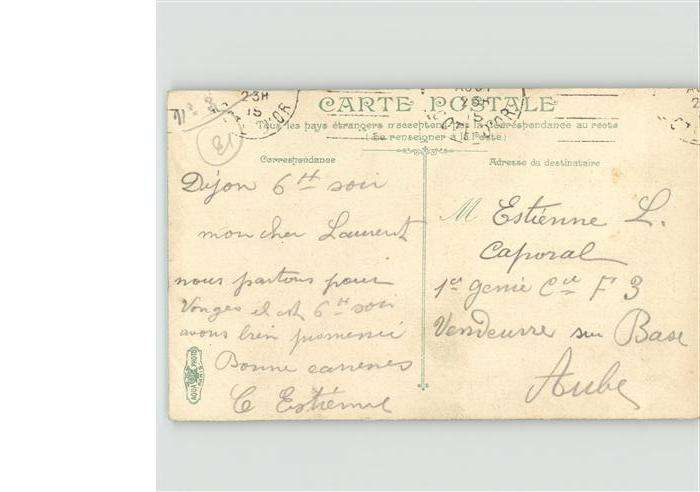 23H
15
AOUT
23H
15
CARTE POSTALE
Tous les pays étrangers n'acceptent pas la correspondance au recto
(Se renseigner à la Poste)
Correspondance
Dijon 6 H soir
mon cher Laurent
nous partons pour
Vonges il est 6 H soir
avons bien promené
Bonne
E Estienne
Adresse du destinataire
M Estienne L.
Caporal
1er Genie Cie F 3
Vendeuvre sur Base
Aube
AQUA PHOTO
PARIS